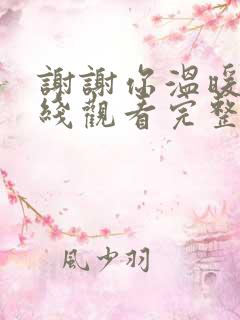 謝謝你溫暖
綫觀看完整
風少羽